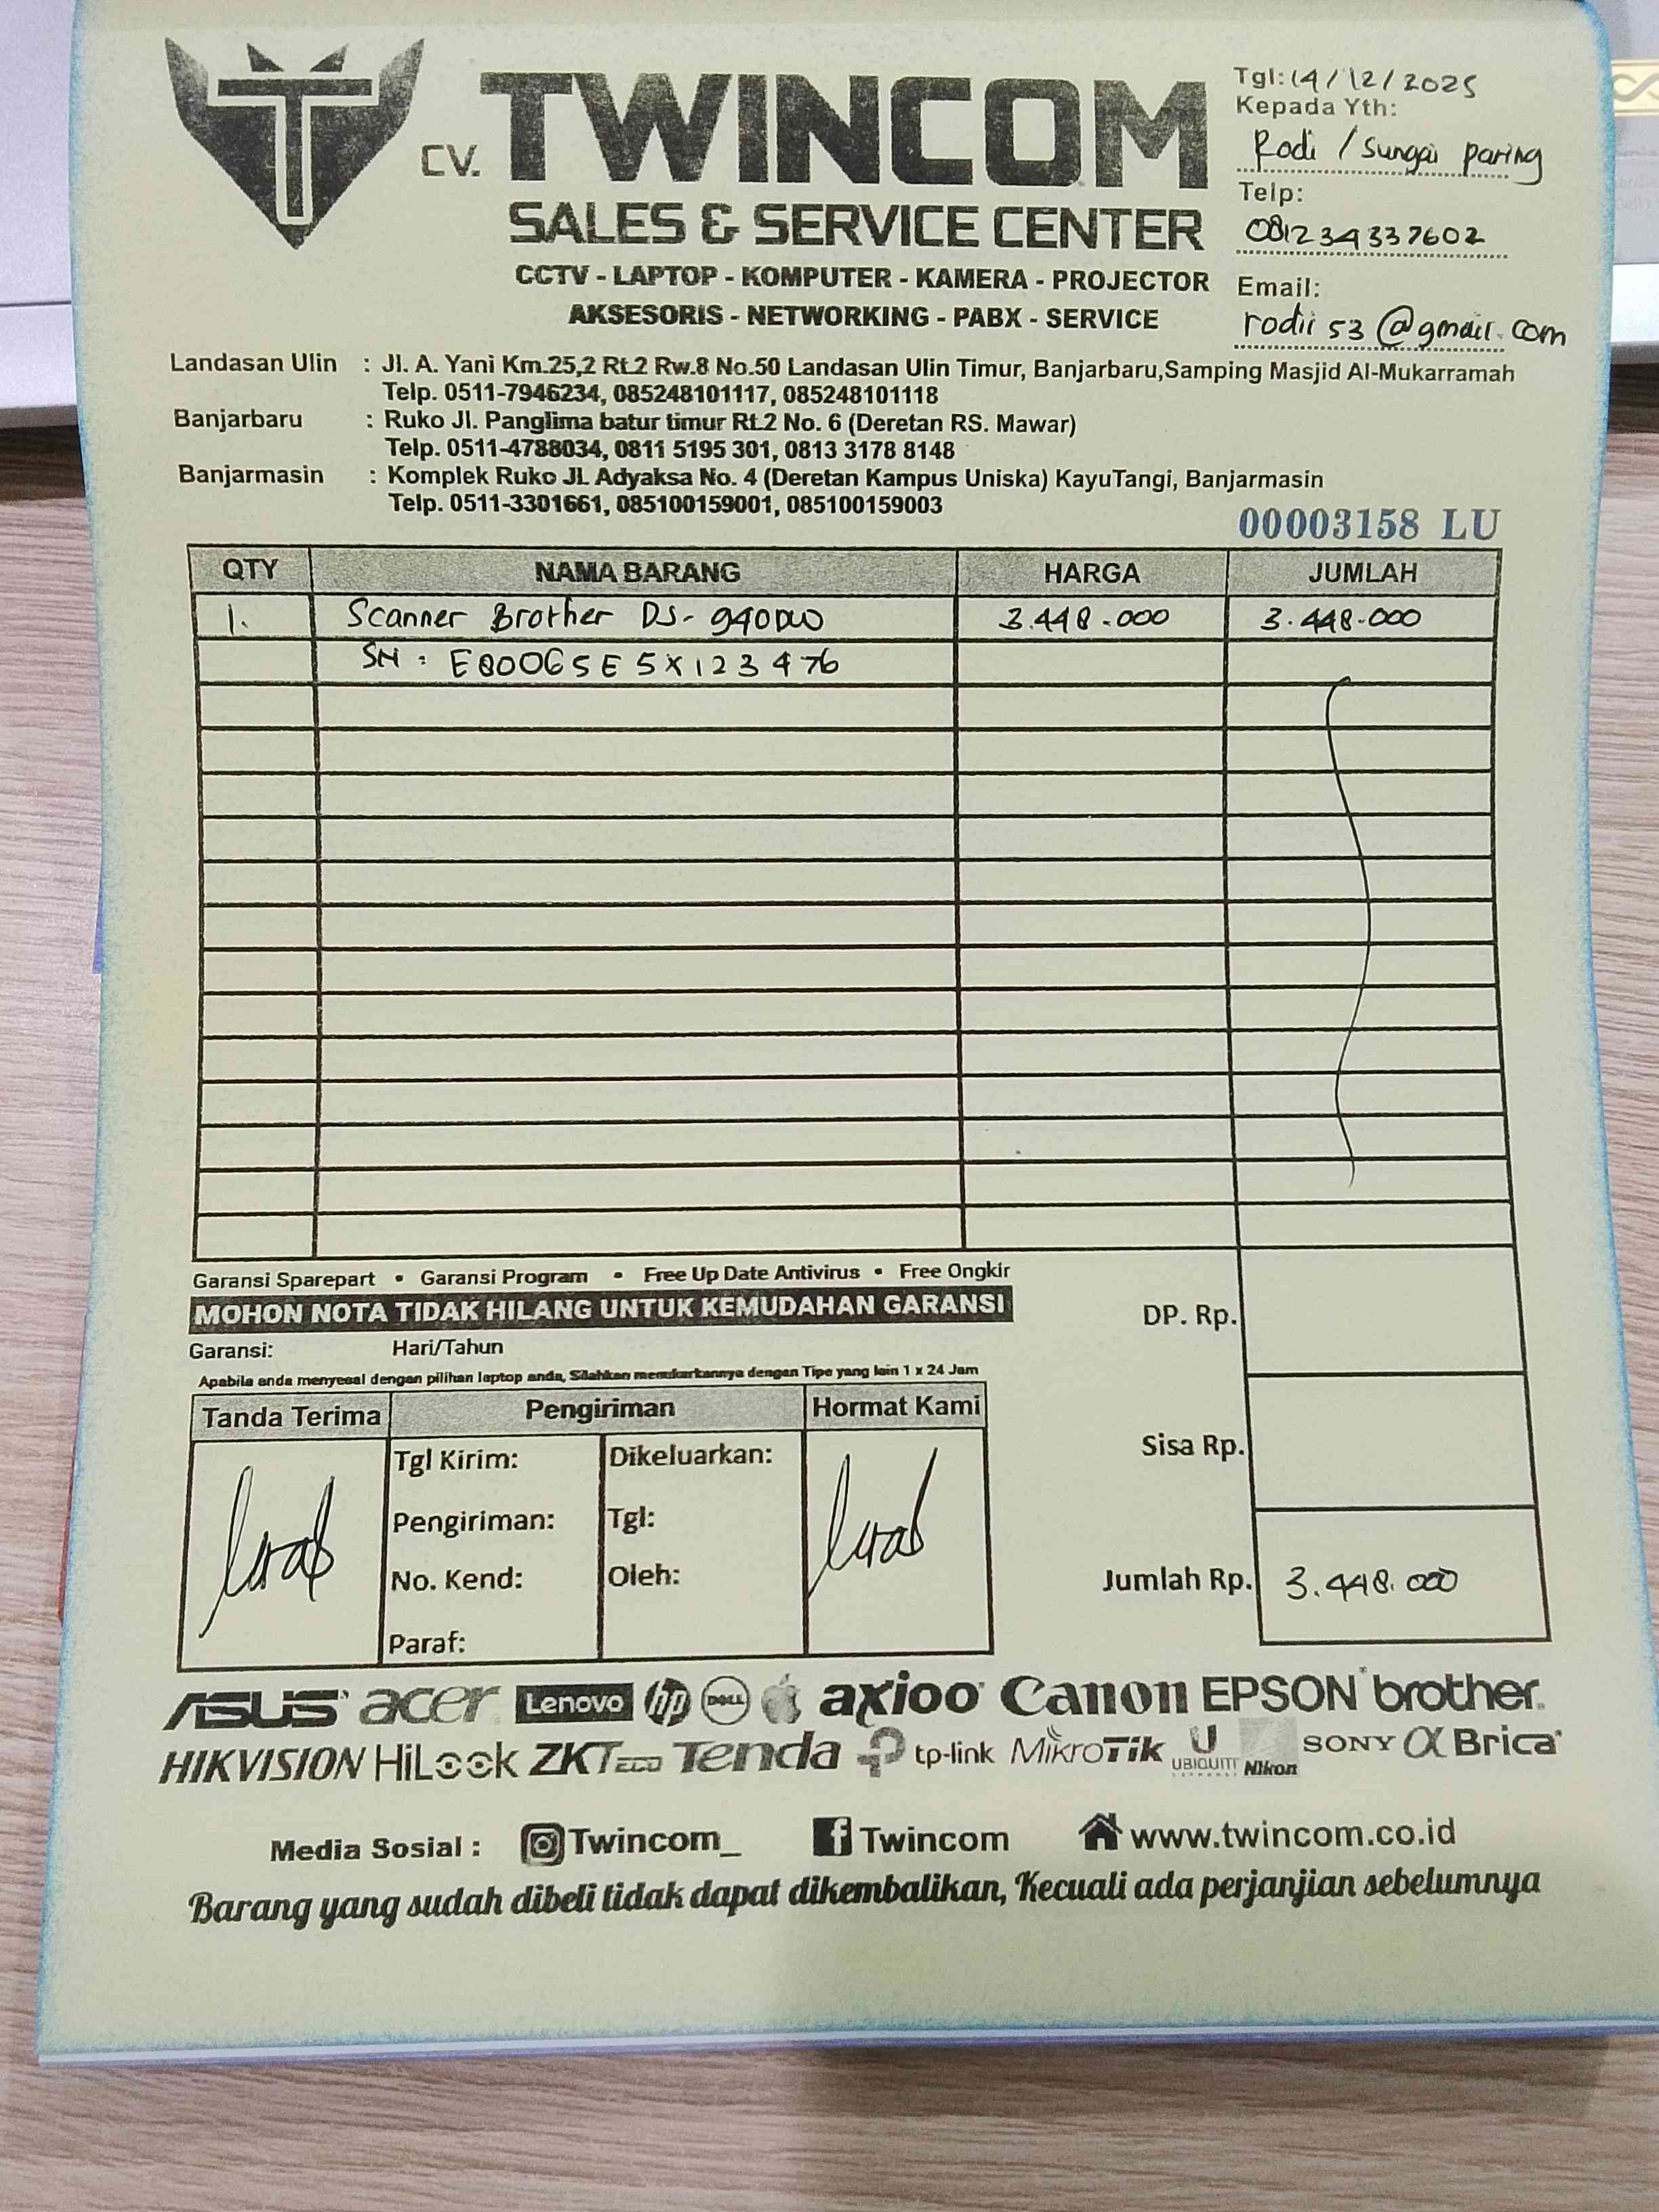 CV. TWINCOM
SALES & SERVICE CENTER
CCTV - LAPTOP - KOMPUTER - KAMERA - PROJECTOR
AKSESORIS - NETWORKING - PABX - SERVICE
Tgl: 14/12/2025
Kepada Yth:
Rodi / Sungai paring
Telp:
081234337602
Email:
rodii53@gmail.com
Landasan Ulin : Jl. A. Yani Km.25,2 Rt.2 Rw.8 No.50 Landasan Ulin Timur, Banjarbaru,Samping Masjid Al-Mukarramah
Telp. 0511-7946234, 085248101117, 085248101118
Banjarbaru : Ruko Jl. Panglima batur timur Rt.2 No. 6 (Deretan RS. Mawar)
Telp. 0511-4788034, 0811 5195 301, 0813 3178 8148
Banjarmasin : Komplek Ruko Jl. Adyaksa No. 4 (Deretan Kampus Uniska) KayuTangi, Banjarmasin
Telp. 0511-3301661, 085100159001, 085100159003
00003158 LU
QTY NAMA BARANG HARGA JUMLAH
1. Scanner Brother DS-940DW 3.448.000 3.448.000
SN : E80065E5X123476
Garansi Sparepart • Garansi Program • Free Up Date Antivirus • Free Ongkir
MOHON NOTA TIDAK HILANG UNTUK KEMUDAHAN GARANSI
Garansi: Hari/Tahun
Apabila anda menyesal dengan pilihan laptop anda, Silahkan menukarkannya dengan Tipe yang lain 1 x 24 Jam
DP. Rp.
Sisa Rp.
Jumlah Rp. 3.448.000
Tanda Terima Pengiriman Hormat Kami
Tgl Kirim: Dikeluarkan:
Pengiriman: Tgl:
No. Kend: Oleh:
Paraf:
ASUS acer Lenovo hp DELL axioo Canon EPSON brother
HIKVISION HiLook ZKTeco Tenda tp-link MikroTik UBIQUITI Nikon SONY α Brica
Media Sosial : Twincom_ Twincom www.twincom.co.id
Barang yang sudah dibeli tidak dapat dikembalikan, Kecuali ada perjanjian sebelumnya